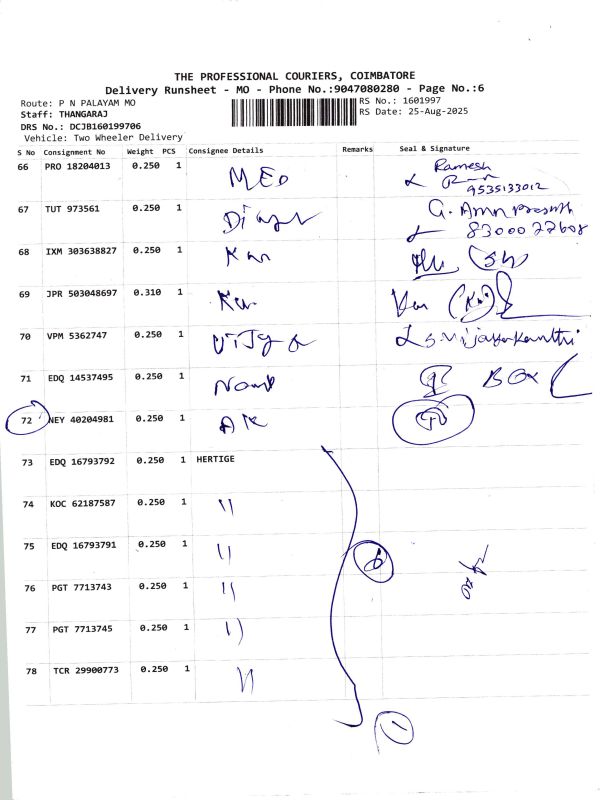 THE PROFESSIONAL COURIERS, COIMBATORE
Delivery Runsheet - MO - Phone No.:9047080280 - Page No.:6
Route: P N PALAYAM MO
RS No.: 1601997
Staff: THANGARAJ
RS Date: 25-Aug-2025
DRS No.: DCJB160199706
Vehicle: Two Wheeler Delivery
S No Consignment No Weight PCS Consignee Details Remarks Seal & Signature
66 PRO 18204013 0.250 1 MED Ramesh
9535133012
67 TUT 973561 0.250 1
83000 27608
68 IXM 303638827 0.250 1
69 JPR 503048697 0.310 1
70 VPM 5362747 0.250 1
71 EDQ 14537495 0.250 1 BOX
72 NEY 40204981 0.250 1
73 EDQ 16793792 0.250 1 HERTIGE
74 KOC 62187587 0.250 1 "
75 EDQ 16793791 0.250 1 "
6
76 PGT 7713743 0.250 1 "
77 PGT 7713745 0.250 1 "
78 TCR 29900773 0.250 1 "
1